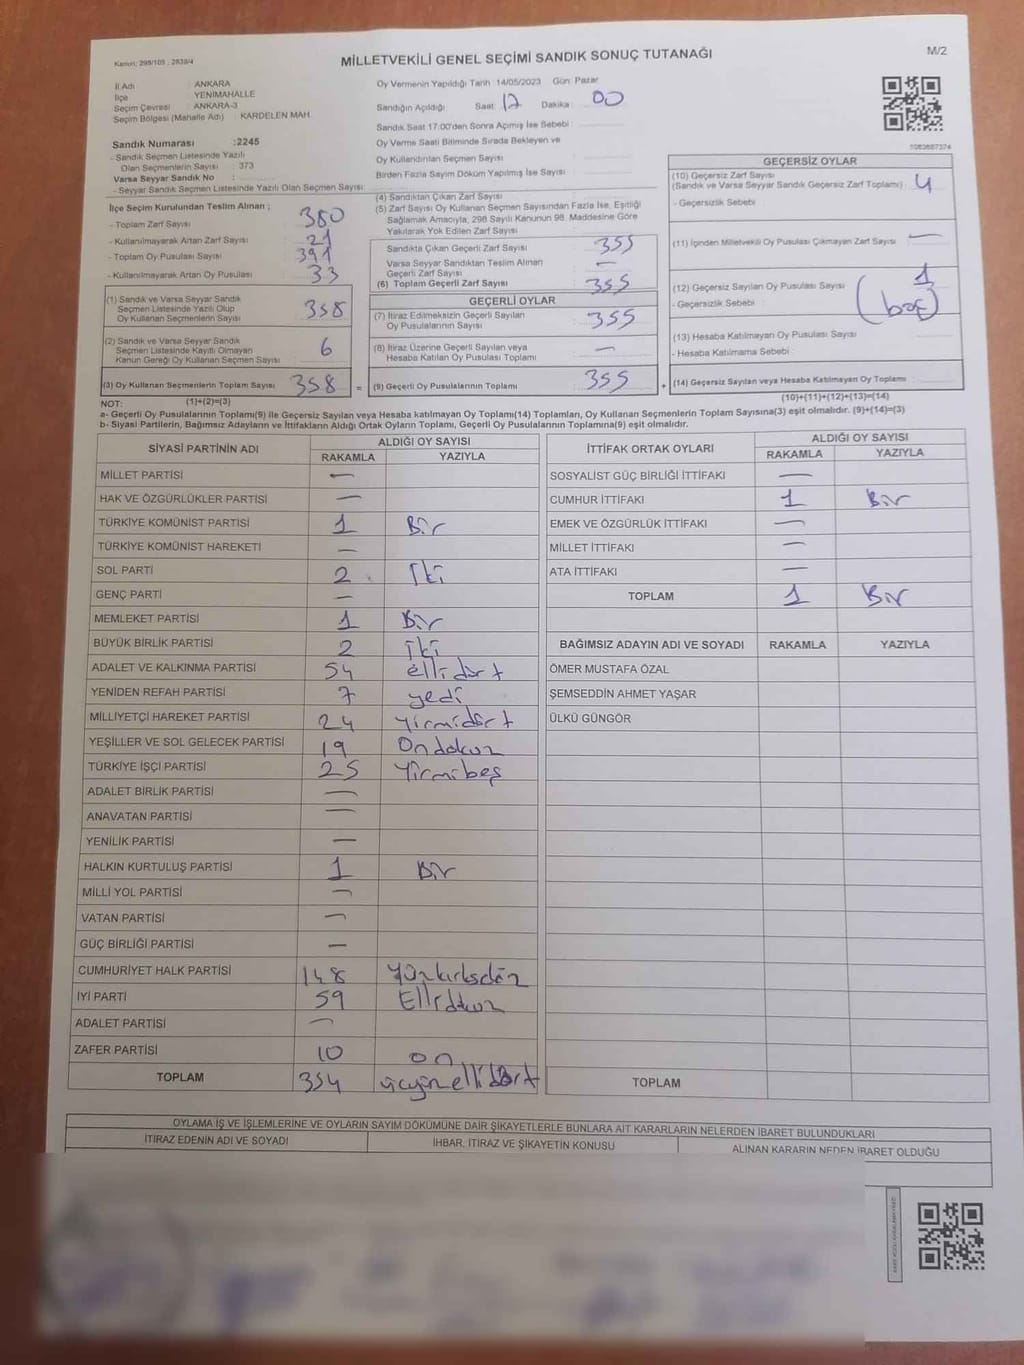 Kanun: 298/105, 2839/4
MİLLETVEKİLİ GENEL SEÇİMİ SANDIK SONUÇ TUTANAĞI
M/2
İl Adı : ANKARA
İlçe : YENİMAHALLE
Seçim Çevresi : ANKARA-3
Seçim Bölgesi (Mahalle Adı) : KARDELEN MAH.
Sandık Numarası :2245
- Sandık Seçmen Listesinde Yazılı
Olan Seçmenlerin Sayısı : 373
Varsa Seyyar Sandık No :
- Seyyar Sandık Seçmen Listesinde Yazılı Olan Seçmen Sayısı :
Oy Vermenin Yapıldığı Tarih :14/05/2023 Gün: Pazar
Sandığın Açıldığı Saat: 17 Dakika : 00
Sandık Saat 17:00'den Sonra Açımış İse Sebebi :
Oy Verme Saati Bitiminde Sırada Bekleyen ve
Oy Kullandırılan Seçmen Sayısı :
Birden Fazla Sayım Döküm Yapılmış İse Sayısı :
İlçe Seçim Kurulundan Teslim Alınan ;
- Toplam Zarf Sayısı : 380
- Kullanılmayarak Artan Zarf Sayısı : 21
- Toplam Oy Pusulası Sayısı : 391
- Kullanılmayarak Artan Oy Pusulası : 33
(1) Sandık ve Varsa Seyyar Sandık
Seçmen Listesinde Yazılı Olup
Oy Kullanan Seçmenlerin Sayısı : 358
(2) Sandık ve Varsa Seyyar Sandık
Seçmen Listesinde Kayıtlı Olmayan
Kanun Gereği Oy Kullanan Seçmen Sayısı : 6
(3) Oy Kullanan Seçmenlerin Toplam Sayısı : 358
(1)+(2)=(3)
(4) Sandıktan Çıkan Zarf Sayısı :
(5) Zarf Sayısı Oy Kullanan Seçmen Sayısından Fazla İse, Eşitliği
Sağlamak Amacıyla, 298 Sayılı Kanunun 98. Maddesine Göre
Yakılarak Yok Edilen Zarf Sayısı :
Sandıkta Çıkan Geçerli Zarf Sayısı : 355
Varsa Seyyar Sandıktan Teslim Alınan
Geçerli Zarf Sayısı : —
(6) Toplam Geçerli Zarf Sayısı : 355
GEÇERLİ OYLAR
(7) İtiraz Edilmeksizin Geçerli Sayılan
Oy Pusulalarının Sayısı : 355
(8) İtiraz Üzerine Geçerli Sayılan veya
Hesaba Katılan Oy Pusulası Toplamı : —
= (9) Geçerli Oy Pusulalarının Toplamı : 355 +
1083687374
GEÇERSİZ OYLAR
(10) Geçersiz Zarf Sayısı
(Sandık ve Varsa Seyyar Sandık Geçersiz Zarf Toplamı) : 4
- Geçersizlik Sebebi :
(11) İçinden Milletvekili Oy Pusulası Çıkmayan Zarf Sayısı : —
(12) Geçersiz Sayılan Oy Pusulası Sayısı : 1
- Geçersizlik Sebebi : (boş)
(13) Hesaba Katılmayan Oy Pusulası Sayısı :
- Hesaba Katılmama Sebebi :
(14) Geçersiz Sayılan veya Hesaba Katılmayan Oy Toplamı :
(10)+(11)+(12)+(13)=(14)
NOT:
a- Geçerli Oy Pusulalarının Toplamı(9) ile Geçersiz Sayılan veya Hesaba katılmayan Oy Toplamı(14) Toplamları, Oy Kullanan Seçmenlerin Toplam Sayısına(3) eşit olmalıdır. (9)+(14)=(3)
b- Siyasi Partilerin, Bağımsız Adayların ve İttifakların Aldığı Ortak Oyların Toplamı, Geçerli Oy Pusulalarının Toplamına(9) eşit olmalıdır.
SİYASİ PARTİNİN ADI ALDIĞI OY SAYISI
RAKAMLA YAZIYLA
MİLLET PARTİSİ —
HAK VE ÖZGÜRLÜKLER PARTİSİ —
TÜRKİYE KOMÜNİST PARTİSİ 1 Bir
TÜRKİYE KOMÜNİST HAREKETİ —
SOL PARTİ 2 İki
GENÇ PARTİ —
MEMLEKET PARTİSİ 1 Bir
BÜYÜK BİRLİK PARTİSİ 2 iki
ADALET VE KALKINMA PARTİSİ 54 ellidört
YENİDEN REFAH PARTİSİ 7 yedi
MİLLİYETÇİ HAREKET PARTİSİ 24 Yirmidört
YEŞİLLER VE SOL GELECEK PARTİSİ 19 Ondokuz
TÜRKİYE İŞÇİ PARTİSİ 25 Yirmibeş
ADALET BİRLİK PARTİSİ —
ANAVATAN PARTİSİ —
YENİLİK PARTİSİ —
HALKIN KURTULUŞ PARTİSİ 1 Bir
MİLLİ YOL PARTİSİ —
VATAN PARTİSİ —
GÜÇ BİRLİĞİ PARTİSİ —
CUMHURİYET HALK PARTİSİ 148
İYİ PARTİ 59 Ellidokuz
ADALET PARTİSİ —
ZAFER PARTİSİ 10 on
TOPLAM 354 üçyüzellidört
İTTİFAK ORTAK OYLARI ALDIĞI OY SAYISI
RAKAMLA YAZIYLA
SOSYALİST GÜÇ BİRLİĞİ İTTİFAKI —
CUMHUR İTTİFAKI 1 Bir
EMEK VE ÖZGÜRLÜK İTTİFAKI —
MİLLET İTTİFAKI —
ATA İTTİFAKI —
TOPLAM 1 Bir
BAĞIMSIZ ADAYIN ADI VE SOYADI RAKAMLA YAZIYLA
ÖMER MUSTAFA ÖZAL
ŞEMSEDDİN AHMET YAŞAR
ÜLKÜ GÜNGÖR
TOPLAM
OYLAMA İŞ VE İŞLEMLERİNE VE OYLARIN SAYIM DÖKÜMÜNE DAİR ŞİKAYETLERLE BUNLARA AİT KARARLARIN NELERDEN İBARET BULUNDUKLARI
İTİRAZ EDENİN ADI VE SOYADI İHBAR, İTİRAZ VE ŞİKAYETİN KONUSU ALINAN KARARIN NEDEN İBARET OLDUĞU